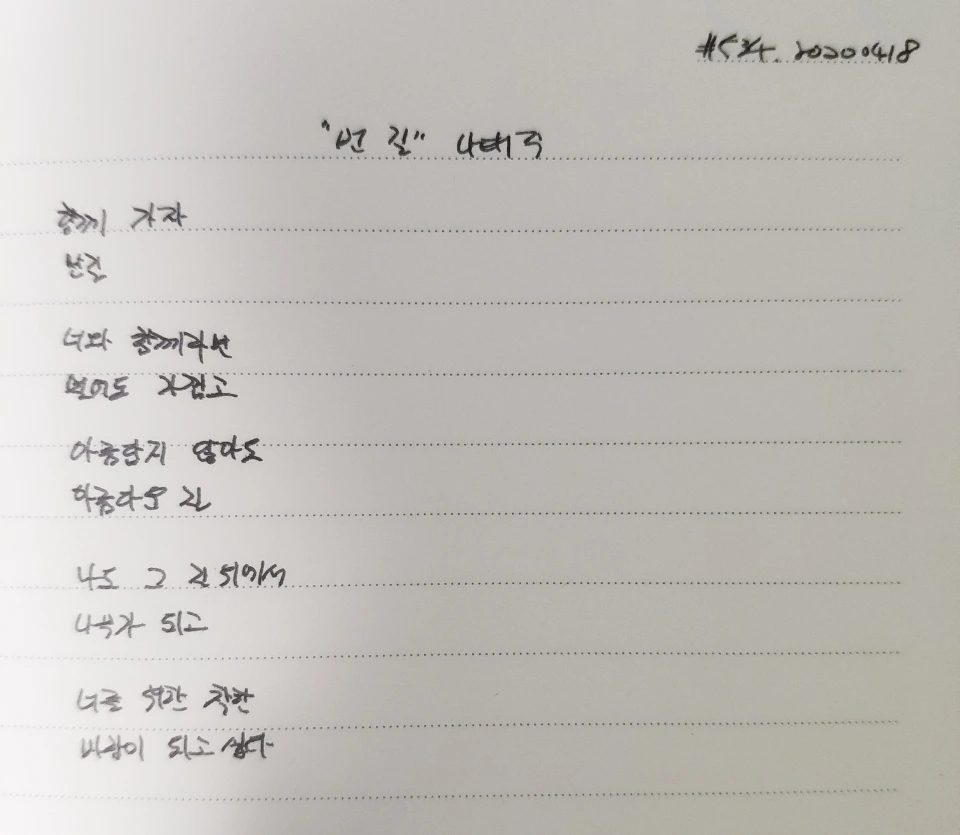 #534. 20200418
"먼 길" 나태주
함께 가자
먼 길
너와 함께라면
멀어도 가깝고
아름답지 않아도
아름다운 길
나도 그 길 위에서
나무가 되고
너를 위한 착한
바람이 되고 싶다